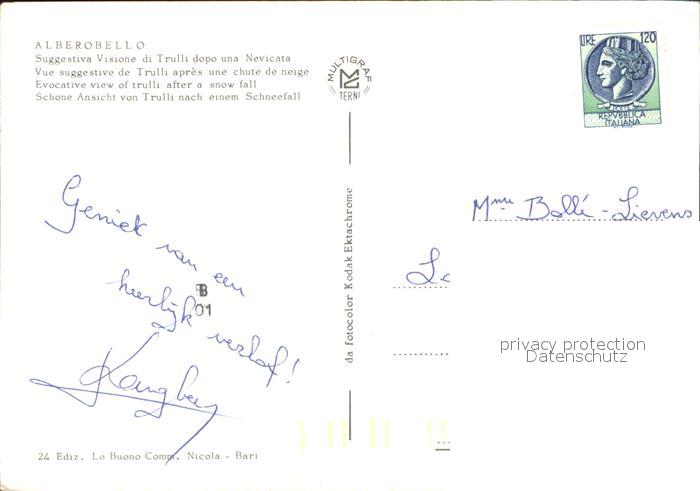 ALBEROBELLO
Suggestiva Visione di Trulli dopo una Nevicata
Vue suggestive de Trulli après une chute de neige
Evocative view of trulli after a snow fall
Schone Ansicht von Trulli nach einem Schneefall
MULTIGRAF
TERNI
LIRE 120
POSTE
REPVBBLICA
ITALIANA
Mme Bollé - Lievens
Geniet van een
heerlijk verlof!
B
01
da fotocolor Kodak Ektachrome
privacy protection
Datenschutz
24 Ediz. Lo Buono Comm. Nicola - Bari